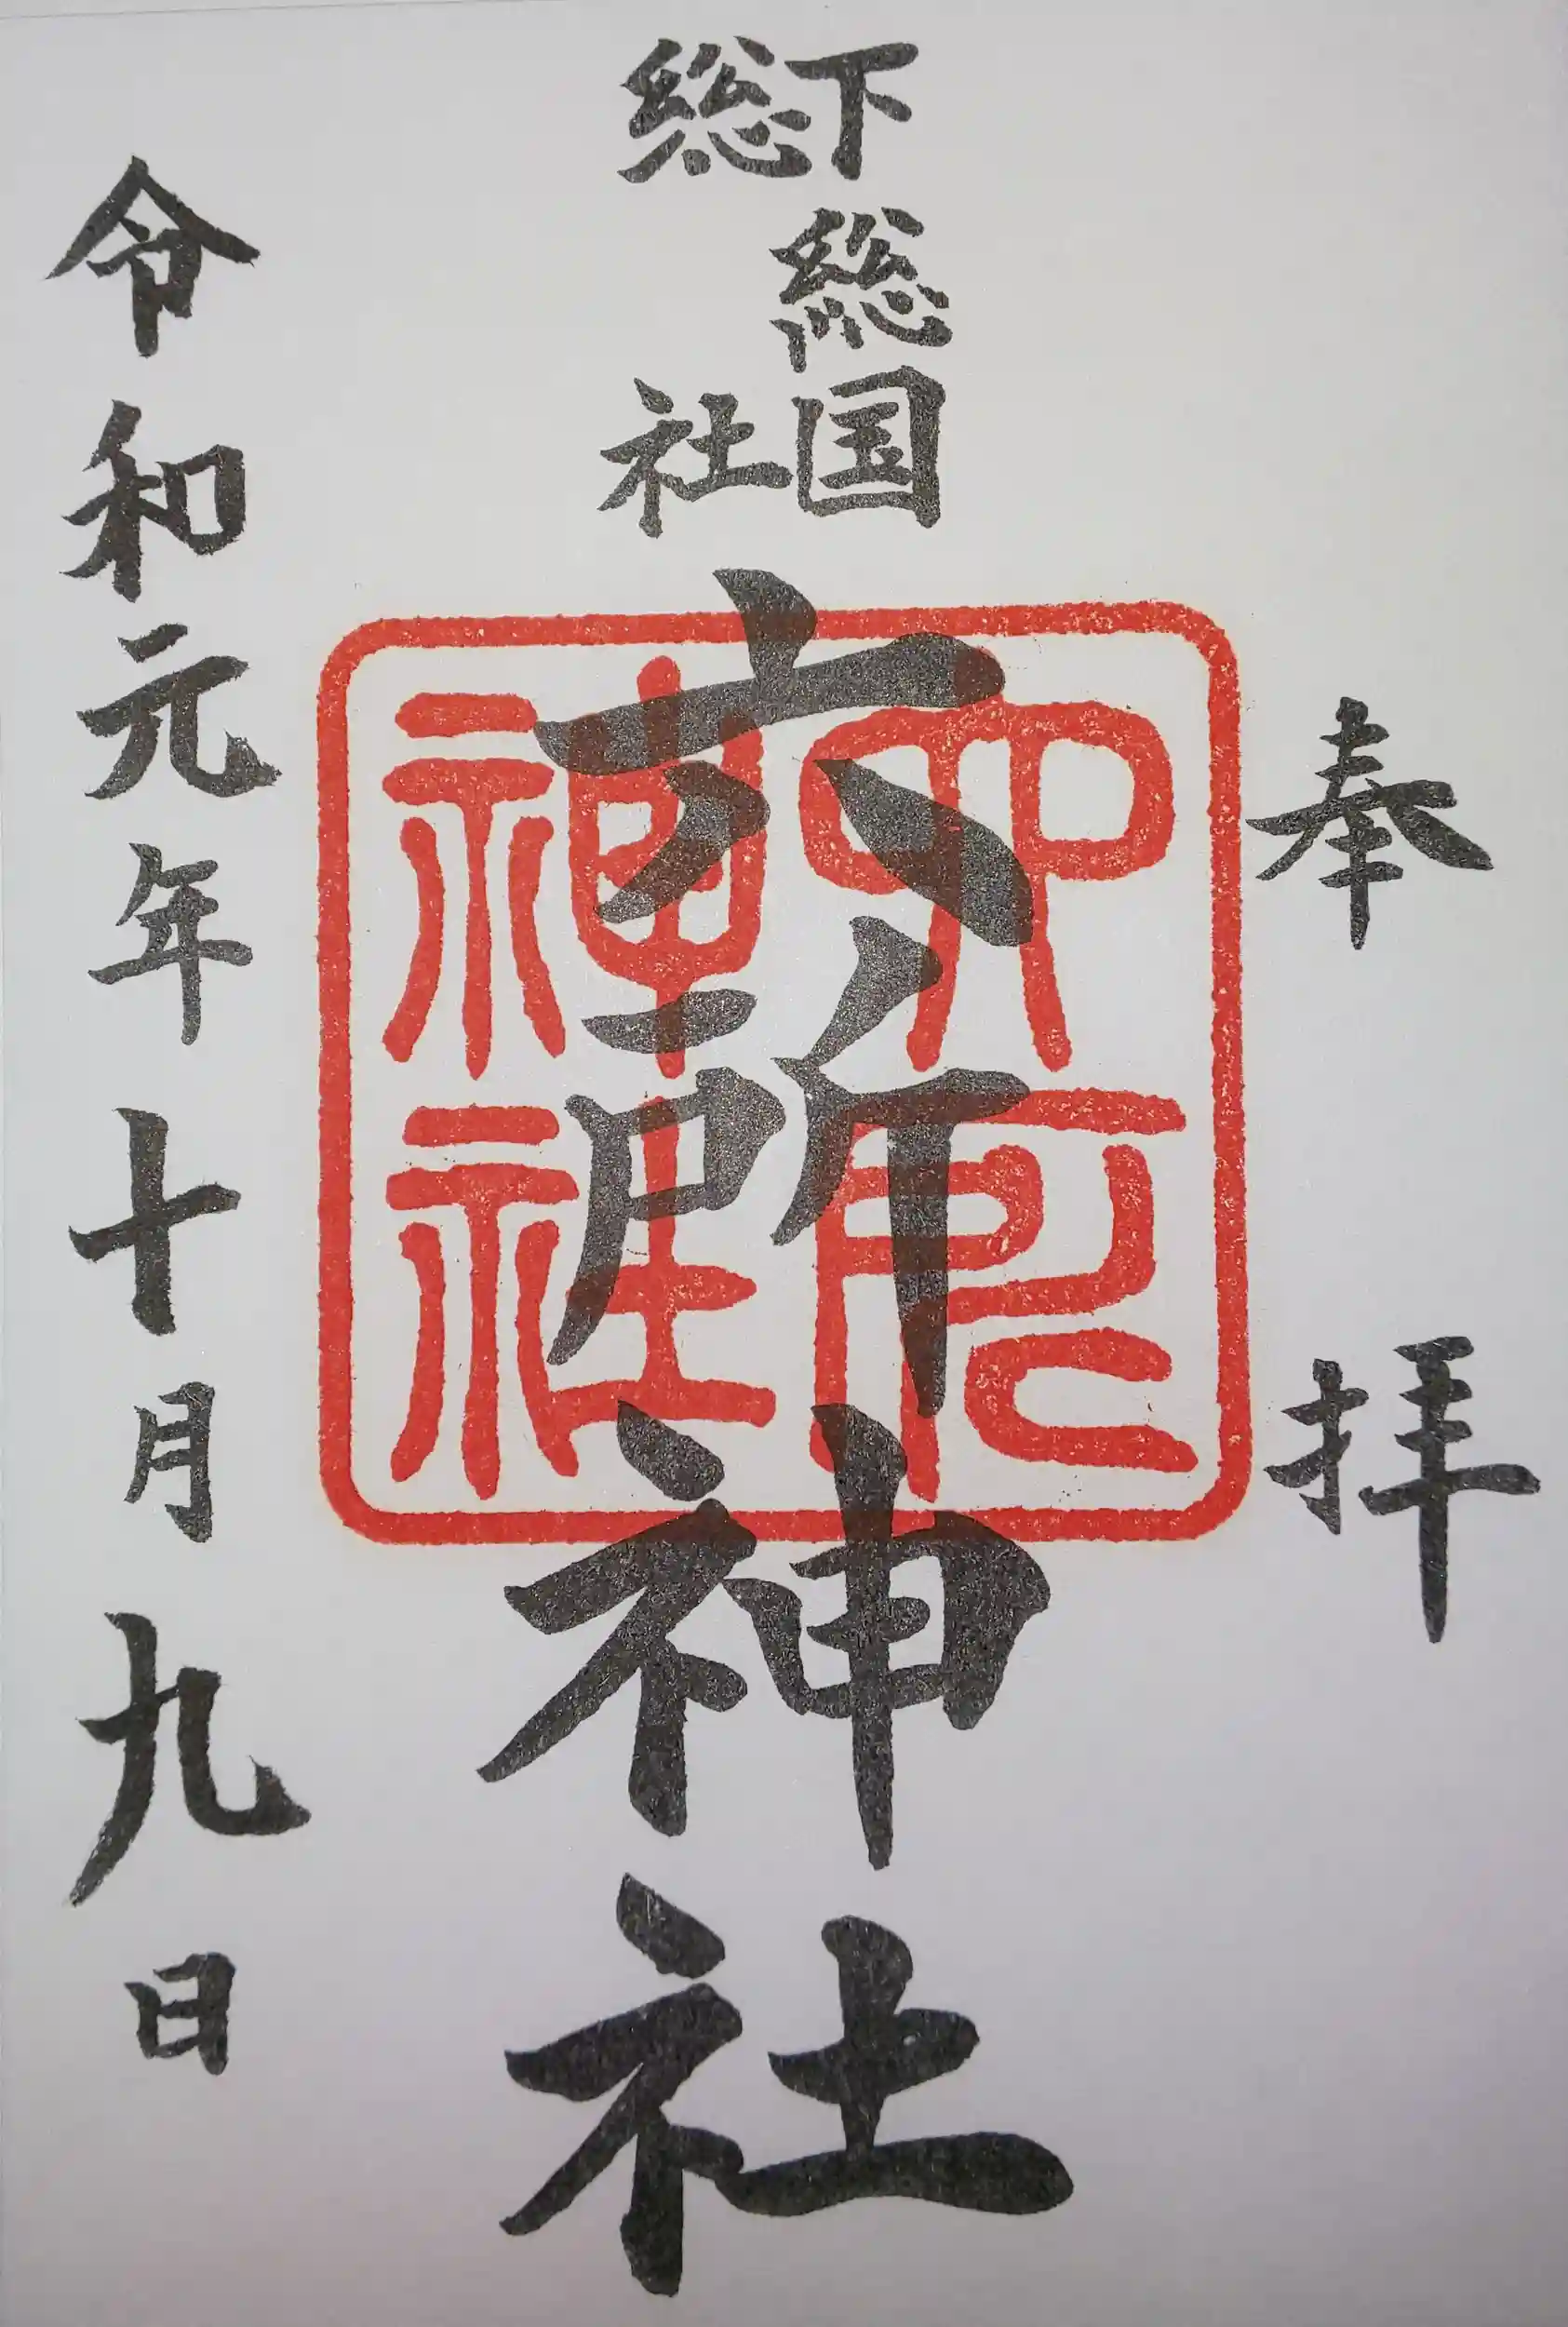 奉拝
下総国
総社
六所神社
六所
神社
令和元年十月九日